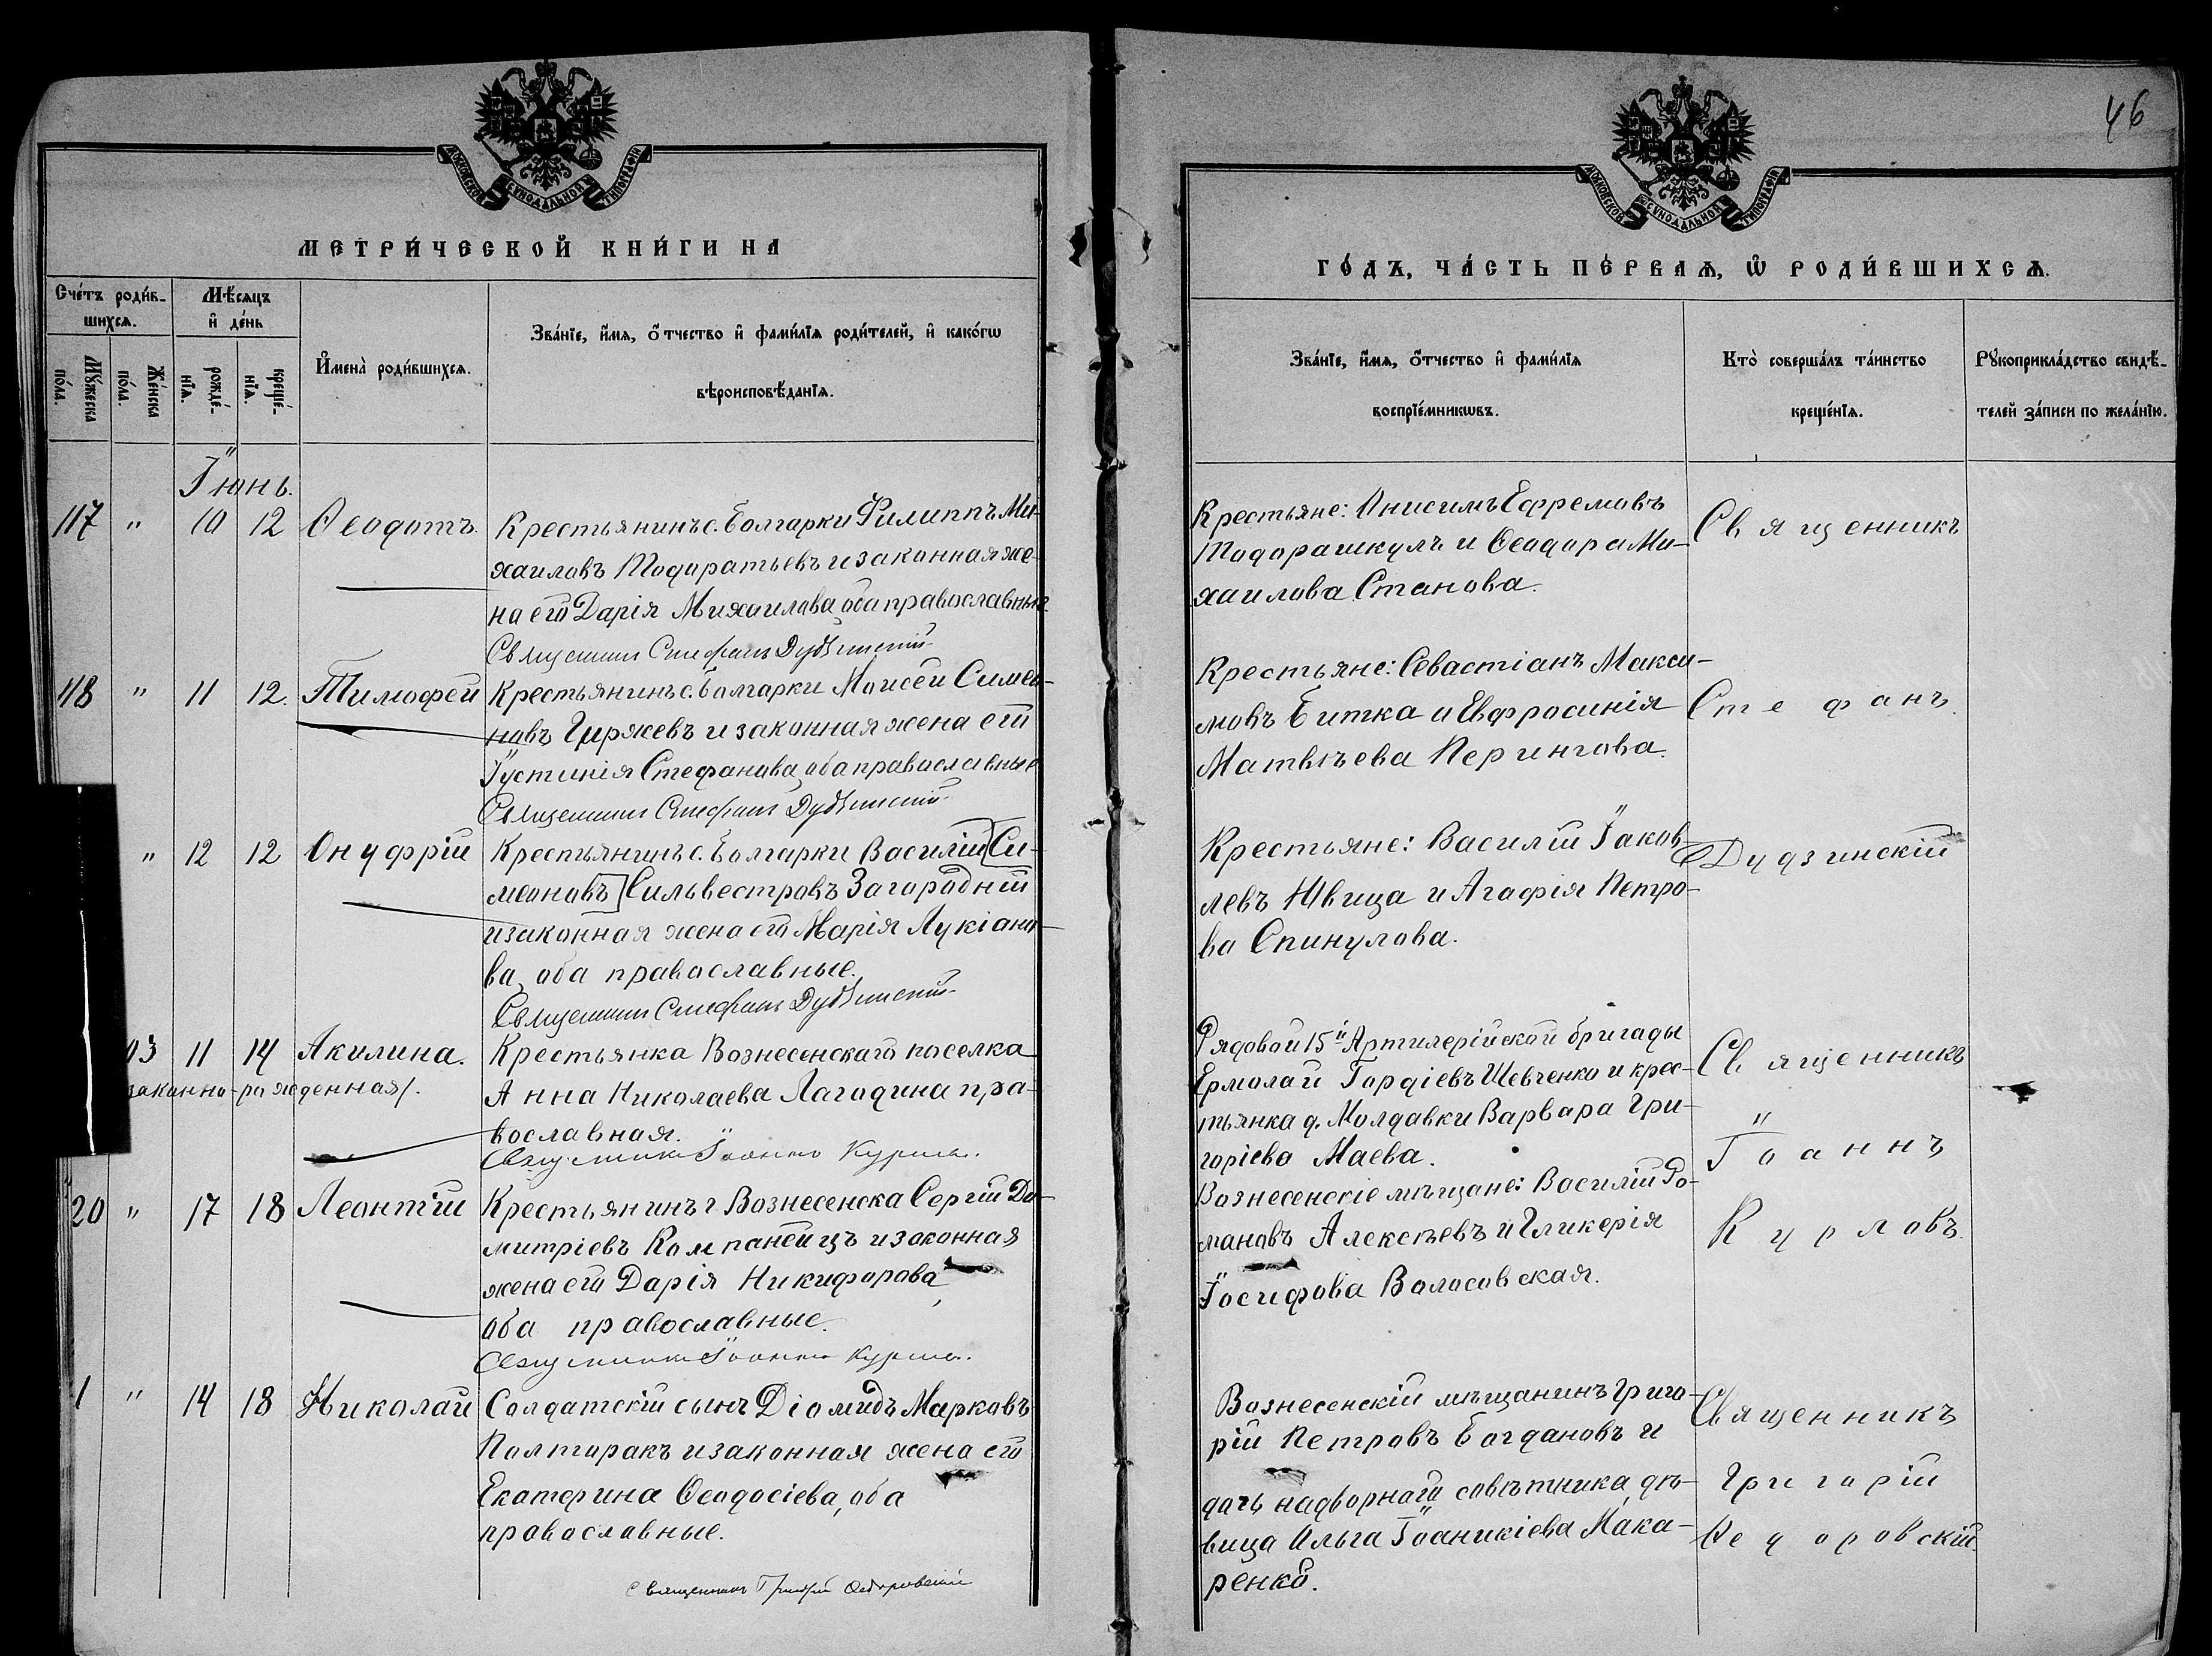 46
МОСКОВСКОЙ СУНОДАЛЬНОЙ ТИПОГРАФІИ
МОСКОВСКОЙ СУНОДАЛЬНОЙ ТИПОГРАФІИ
МЕТРИ́ЧЕСКОЙ КНИ́ГИ НА
ГО́ДЪ, ЧА́СТЬ ПЕ́РВАѦ, Ѡ҆ РОДИ́ВШИХСѦ.
Сче́тъ роди́в-
шихсѧ.
Мꙋ́жеска
по́ла.
Же́нска
по́ла.
Мѣ́сѧцъ
и҆ де́нь
рожде́-
нїѧ.
креще́-
нїѧ.
И҆мена̀ роди́вшихсѧ.
Зва́нїе, и҆́мѧ, ѻ҆́тчество и҆ фами́лїѧ роди́телей, и҆ како́гѡ
вѣроисповѣ́данїѧ.
Зва́нїе, и҆́мѧ, ѻ҆́тчество и҆ фами́лїѧ
воспрїе́мникѡвъ.
Кто̀ соверша́лъ та́инство
креще́нїѧ.
Рꙋкоприкла́дство свидѣ́-
телей за́писи по жела́нїю.
Іюнь.
117 " 10 12 Ѳеодотъ.
Крестьянинъ с. Болгарки Филиппъ Ми-
хаиловъ Тодоратьевъ и законная же-
на его Дарія Михаилова, оба православные.
Священникъ Стефанъ Дудзинскій
Крестьяне: Онисимъ Ефремовъ
Тодорашкулъ и Ѳеодора Ми-
хаилова Станова.
Священникъ
118 " 11 12. Тимофей
Крестьянинъ с. Болгарки Моисей Симео-
новъ Гиржевъ и законная жена его
Іустинія Стефанова, оба православные
Священникъ Стефанъ Дудзинскій
Крестьяне: Севастіанъ Макси-
мовъ Битка и Евфросинія
Матвѣева Перингова.
Стефанъ
" 12 12 Онуфрій
Крестьянинъ с. Болгарки Василій [Си-
меоновъ] Сильвестровъ Загородній
и законная жена его Марія Лукіано-
ва, оба православные.
Священникъ Стефанъ Дудзинскій
Крестьяне: Василій Іаков-
левъ Швица и Агафія Петро-
ва Спинулова.
Дудзинскій
03 11 14 Акилина.
законно-рожденная/.
Крестьянка Вознесенскаго поселка
Анна Николаева Лагодина пра-
вославная.
Священникъ Іоаннъ Курловъ.
Рядовой 15й Артилерійской бригады
Ермолай Гордіевъ Шевченко и крес-
тьянка д. Молдавки Варвара Гри-
горіева Маева.
Священникъ
Іоаннъ
20 " 17 18 Леонтій
Крестьянинъ г. Вознесенска Сергій Ди-
митріевъ Компанеицъ и законная
жена его Дарія Никифорова,
оба православные.
Священникъ Іоаннъ Курловъ.
Вознесенскіе мѣщане: Василій Ро-
мановъ Алексѣевъ и Гликерія
Іосифова Волосовская.
Курловъ.
1 " 14 18 Николай
Солдатскій сынъ Діомидъ Марковъ
Полторакъ и законная жена его
Екатерина Ѳеодосіева, оба
православные.
Священникъ Григорій Ѳедоровскій
Вознесенскій мѣщанинъ Григо-
рій Петровъ Богдановъ и
дочь надворнаго совѣтника, дѣ-
вица Ольга Іоаникіева Мака-
ренко.
Священникъ
Григорій
Ѳедоровскій.